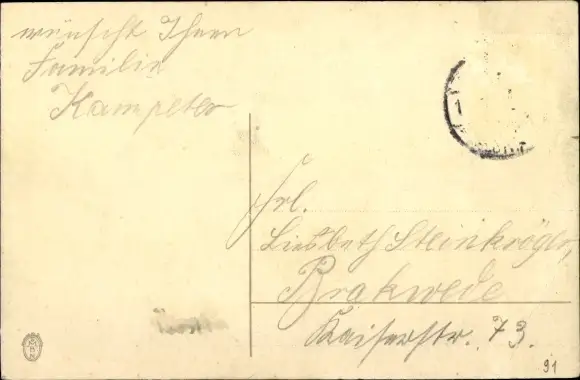 wünscht Ihnen
Familie
Kampeter
Frl.
Liesbeth Steinkröger,
Brakwede
Kaiserstr. 73.
91
1